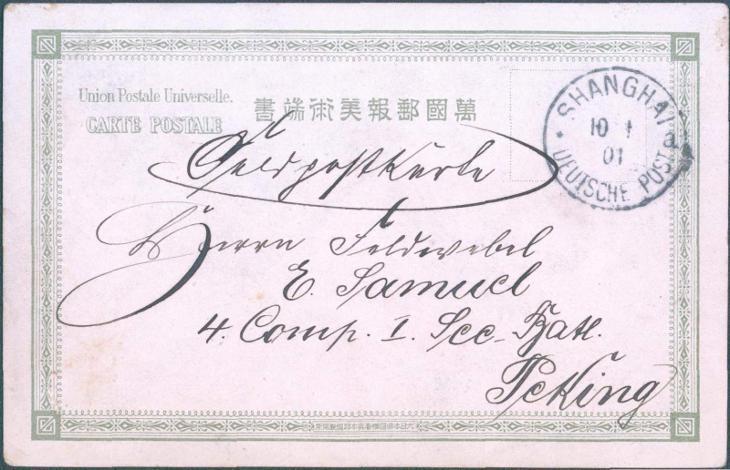 Union Postale Universelle.
CARTE POSTALE
萬國郵報美術端書
SHANGHAI
a
10 1
01
DEUTSCHE POST
Feldpostkarte
Herrn Feldwebel
E. Samuel
4. Comp. I. See-Batl.
Peking